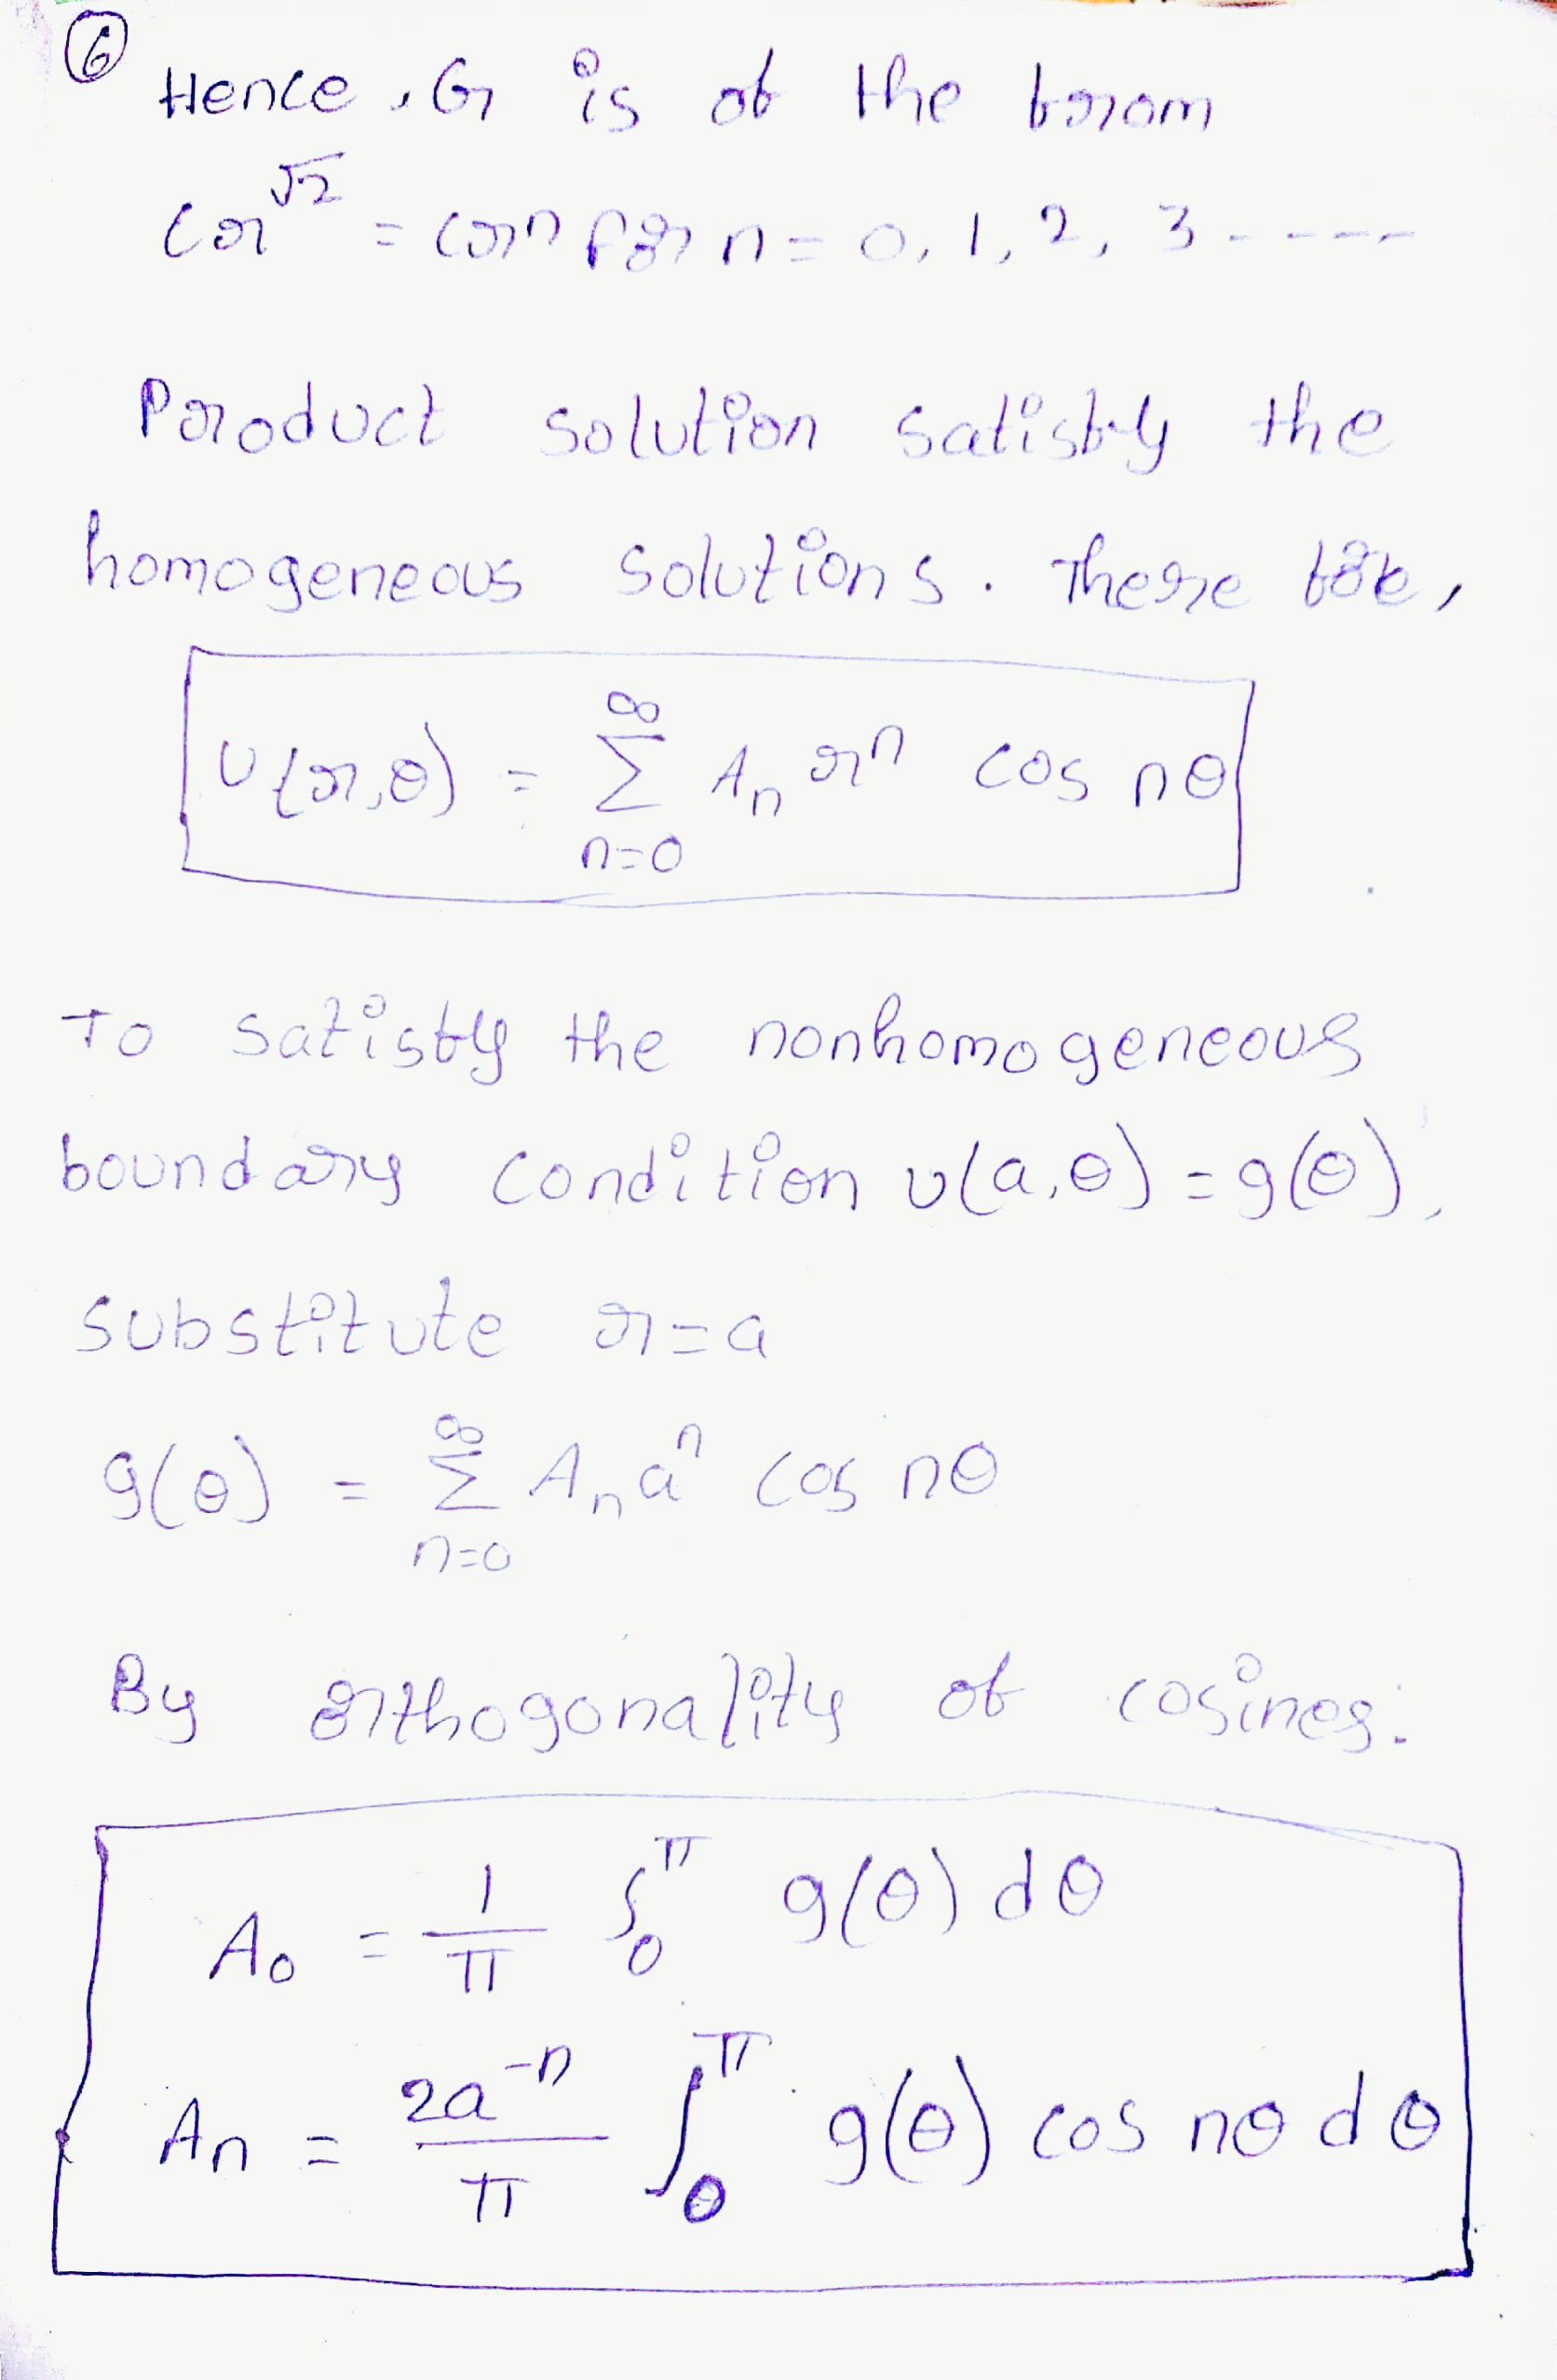 ⑥
Hence, G is of the form
cr^√λ = cr^n for n = 0, 1, 2, 3 - - - - -
Product solution satisfy the
homogeneous solutions. There fore,
u(r,θ) = ∑_{n=0}^{∞} A_n r^n cos nθ
To satisfy the nonhomogeneous
boundary condition u(a,θ) = g(θ),
substitute r = a
g(θ) = ∑_{n=0}^{∞} A_n a^n cos nθ
By orthogonality of cosines:
A_0 = 1/π ∫_0^π g(θ) dθ
A_n = 2a^{-n}/π ∫_0^π g(θ) cos nθ dθ